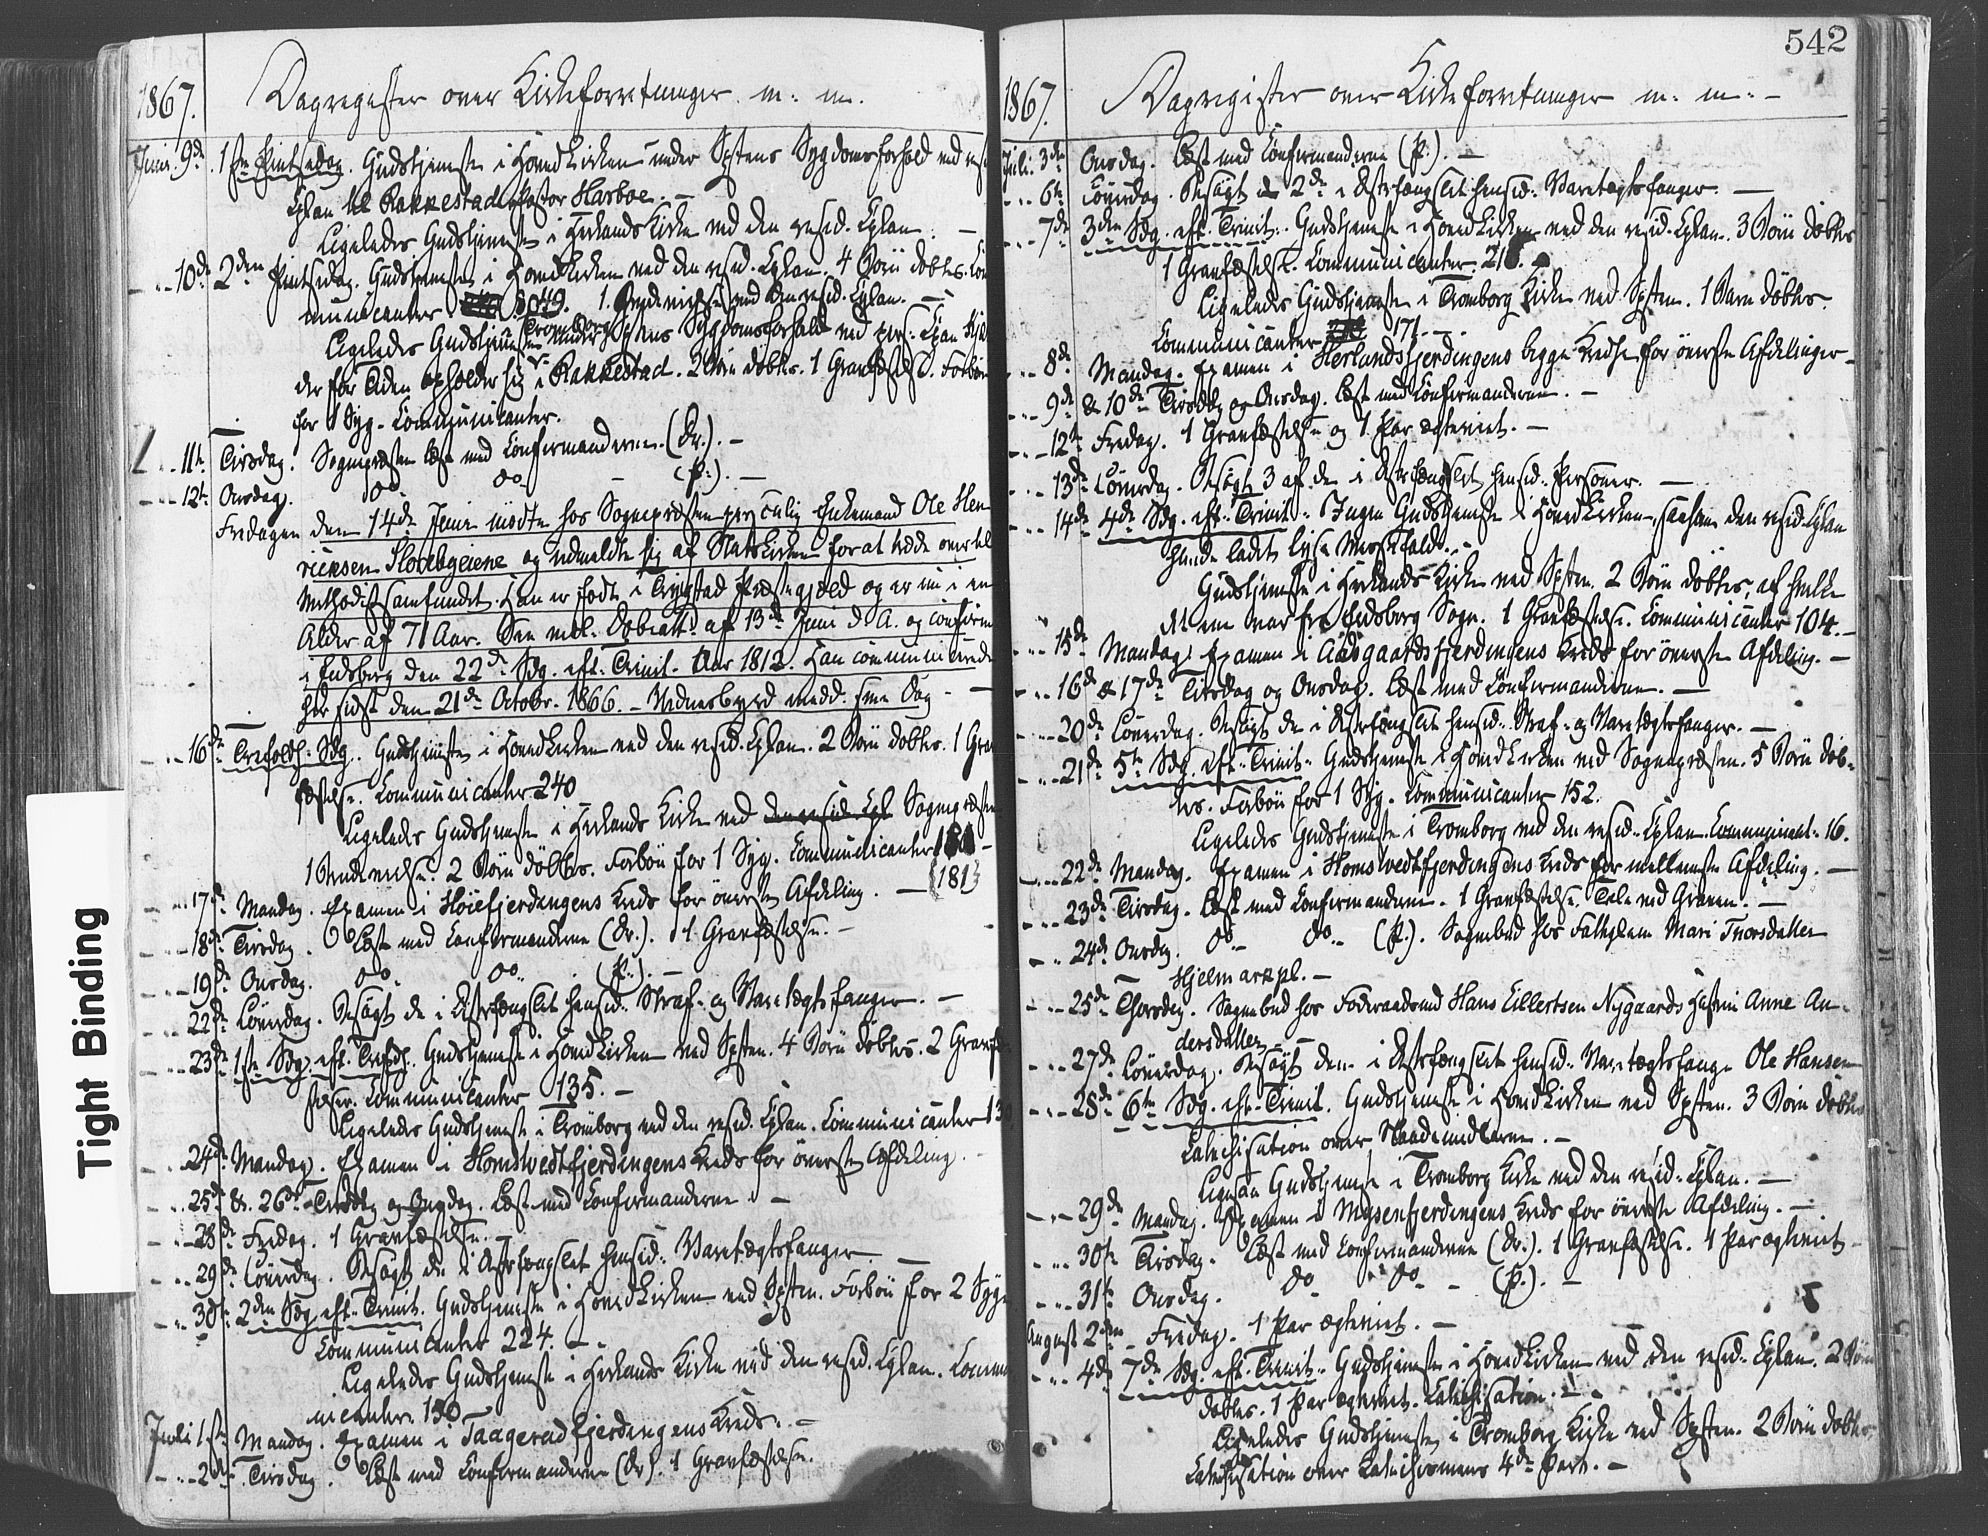 1867. Dagregister over Kirkeforretninger m: m.
Juni 9de 1ste Pintsedag. Gudstjeneste i Hovedkirken under Spstens Sygdomsforfald ved
Cplan til Rakkestad Pastor Harboe. –
Ligeledes Gudstjeneste i Herlands Kirke ved den resid. Cplan. –
– 10de 2den Pintsedag. Gudstjeneste i Hovedkirken ved den resid. Cplan. 4 Børn døbtes. Com
municanter 1 ved den resid. Cplan. –
Ligeledes Gudstjeneste i Tromborg under Spstens Sygdomsforfald ved pers. Cplan
der for Tiden opholder sig i Rakkestad. 2 Børn døbtes. 1 Gravfæstelse. Forbøn
for 1 Syg. Communicanter.
– 11te Tirsdag. Sognepræsten læst med Confirmanderne. (Dr.). –
– 12te Onsdag. do do – (P.). –
Fredagen den 14de Juni mødte hos Sognepræsten personlig Enkemand Ole Hen
ricksen og udmeldte sig af Statskirken for at træde over til
Methodistsamfundet. Han er født i Trygstad Præstegjæld og er nu i en
Alder af 71 Aar. Sen. mel. Døbeatt. af 13de Juni d. A. og confirm
i Eidsberg den 22de Sdg. eft. Trinit. Aar 1812. Han communicerede
her sidst den 21de Octobr. 1866. – Vidnesbyrd medd. s: me Dag –
– 16de Trefoldh. Sdg. Gudstjeneste i Hovedkirken ved den resid. Cplan. 2 Børn døbtes. 1 Grav
fæstelse. Communicanter 240
Ligeledes Gudstjeneste i Herlands Kirke ved den resid. Cpl Sognepræsten
2 Børn døbtes. Forbøn for 1 Syg. Communicanter 181 –
(181)
– 17de Mandag. Examen i Høiefjerdingens Kreds for øverste Afdeling. –
– 18de Tirsdag. Læst med Confirmanderne (Dr.). 1 Gravfæstelse. –
– 19de Onsdag. do do (P.). –
– 22de Løverdag. Besøgt de i Distrfængslet hensid. Straf- og Varetægtsfanger. –
– 23de 1ste Sdg. eft. Trefdh. Gudstjeneste i Hovedkirken ved Spsten. 4 Børn døbtes. 2 Gravfæ
stelser. Communicanter 135. –
Ligeledes Gudstjeneste i Tromborg ved den resid. Cplan. Communicanter
– 24de Mandag. Examen i Homstvedtfjerdingens Kreds for øverste Afdeling. –
– 25de & 26de Tirsdag og Onsdag. Læst med Confirmanderne –
– 28de Fredag. 1 Gravfæstelse. –
– 29de Løverdag. Besøgt de i Distrfængslet hensid. Varetægtsfanger. –
– 30te 2den Sdg. eft. Trinit. Gudstjeneste i Hovedkirken ved Spsten. Forbøn for 2 Syge.
Communicanter 224. –
Ligeledes Gudstjeneste i Herlands Kirke ved den resid. Cplan. Commu
nicanter. 150 –
Juli 1ste Mandag. Examen i Taagerudfjerdingens Kreds. –
– 2den Tirsdag. Læst med Confirmanderne (Dr). 1 Gravfæstelse.
542
1867. Dagregister over Kirkeforretninger m: m: –
Juli 3de Onsdag. Læst med Confirmanderne (P.). –
– 6te Løverdag. Besøgt de 2de i Distrfængslet hensid. Varetægtsfanger. –
– 7de 3den Sdg. eft. Trinit. Gudstjeneste i Hovedkirken ved den resid. Cplan. 3 Børn døbtes
1 Gravfæstelse. Communicanter
Ligeledes Gudstjeneste i Tromborg Kirke ved Spsten. 1 Barn døbtes.
Communicanter 171. –
– 8de Mandag. Examen i Herlandsfjerdingens begge Kredse for øverste Afdelinger –
– 9de & 10de Tirsdag og Onsdag. Læst med Confirmanderne. –
– 12te Fredag. 1 Gravfæstelse og 1 Par ægteviet. –
– 13de Løverdag. Besøgt 3 af de i Distrfængslet hensid. Personer. –
– 14de 4de Sdg. eft. Trinit. Ingen Gudstjeneste i Hovedkirken, saasom den resid. Cplan
havde ladet lyse Messefald. –
Gudstjeneste i Herlands Kirke ved Spsten. 2 Børn døbtes, af hvilke
det ene var fra Eidsberg Sogn. 1 Gravfæstelse. Communicanter 104. –
– 15de Mandag. Examen i Aasgaardsfjerdingens Kreds for øverste Afdeling. –
– 16de & 17de Tirsdag og Onsdag. Læst med Confirmanderne. –
– 20de Løverdag. Besøgt de i Distrfængslet hensid. Straf- og Varetægtsfanger. –
– 21de 5te Sdg. eft. Trinit. Gudstjeneste i Hovedkirken ved Sognepræsten. 5 Børn døb-
tes. Forbøn for 1 Syg. Communicanter 152.
Ligeledes Gudstjeneste i Tromborg ved den resid. Cplan. Communicant. 16.
– 22de Mandag. Examen i Homstvedtfjerdingens Kreds for mellemste Afdeling. –
– 23de Tirsdag. Læst med Confirmanderne. 1 Gravfæstelse. Tale ved Graven. –
– 24de Onsdag. do do (P.). Sognebud hos Fattiglem Mari Thorsdatter
Hjelmarkpl. –
– 25de Thorsdag. Sognebud hos Føderaadsmd Hans Ellertsen Nygaards Hustru Anne An-
dersdatter. –
– 27de Løverdag. Besøgt den i Distrfængslet hensid. Varetægtsfange Ole Hansen
– 28de 6te Sdg. eft. Trinit. Gudstjeneste i Hovedkirken ved Spsten. 3 Børn døbtes
Catechisation over Naademidlerne. –
Ligesaa Gudstjeneste i Tromborg Kirke ved den resid. Cplan. –
– 29de Mandag. Examen i Mysenfjerdingens Kreds for øverste Afdeling. –
– 30te Tirsdag. Læst med Confirmanderne (Dr.). 1 Gravfæstelse. 1 Par ægteviet –
– 31te Onsdag. do do – (P.). –
August 2den Fredag. 1 Par ægteviet. –
– 4de 7de Sdg. eft. Trinit. Gudstjeneste i Hovedkirken ved den resid. Cplan. 2 Børn
døbtes. 1 Par ægteviet. Catechisation. –
Ligeledes Gudstjeneste i Tromborg Kirke ved Spsten. 2 Børn døbtes
Catechisation over Catechismens 4de Part. –
Tight Binding